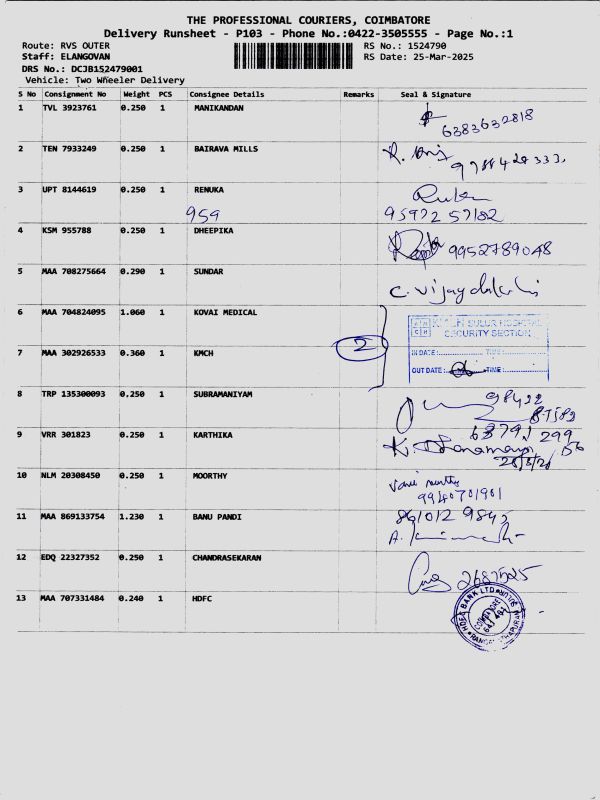 THE PROFESSIONAL COURIERS, COIMBATORE
Delivery Runsheet - P103 - Phone No.:0422-3505555 - Page No.:1
Route: RVS OUTER RS No.: 1524790
Staff: ELANGOVAN RS Date: 25-Mar-2025
DRS No.: DCJB152479001
Vehicle: Two Wheeler Delivery
S No Consignment No Weight PCS Consignee Details Remarks Seal & Signature
1 TVL 3923761 0.250 1 MANIKANDAN
6383632818
2 TEN 7933249 0.250 1 BAIRAVA MILLS
3 UPT 8144619 0.250 1 RENUKA
959 95972 57182
4 KSM 955788 0.250 1 DHEEPIKA 9952789048
5 MAA 708275664 0.290 1 SUNDAR
6 MAA 704824095 1.060 1 KOVAI MEDICAL
KMCH SULUR HOSPITAL
SECURITY SECTION
2
7 MAA 302926533 0.360 1 KMCH
IN DATE: TIME:
OUT DATE: TIME:
8 TRP 135300093 0.250 1 SUBRAMANIYAM 98422
9 VRR 301823 0.250 1 KARTHIKA
10 NLM 20308450 0.250 1 MOORTHY
9940701901
11 MAA 869133754 1.230 1 BANU PANDI
12 EDQ 22327352 0.250 1 CHANDRASEKARAN
2687525
13 MAA 707331484 0.240 1 HDFC
HDFC BANK LTD
COIMBATORE
641 402